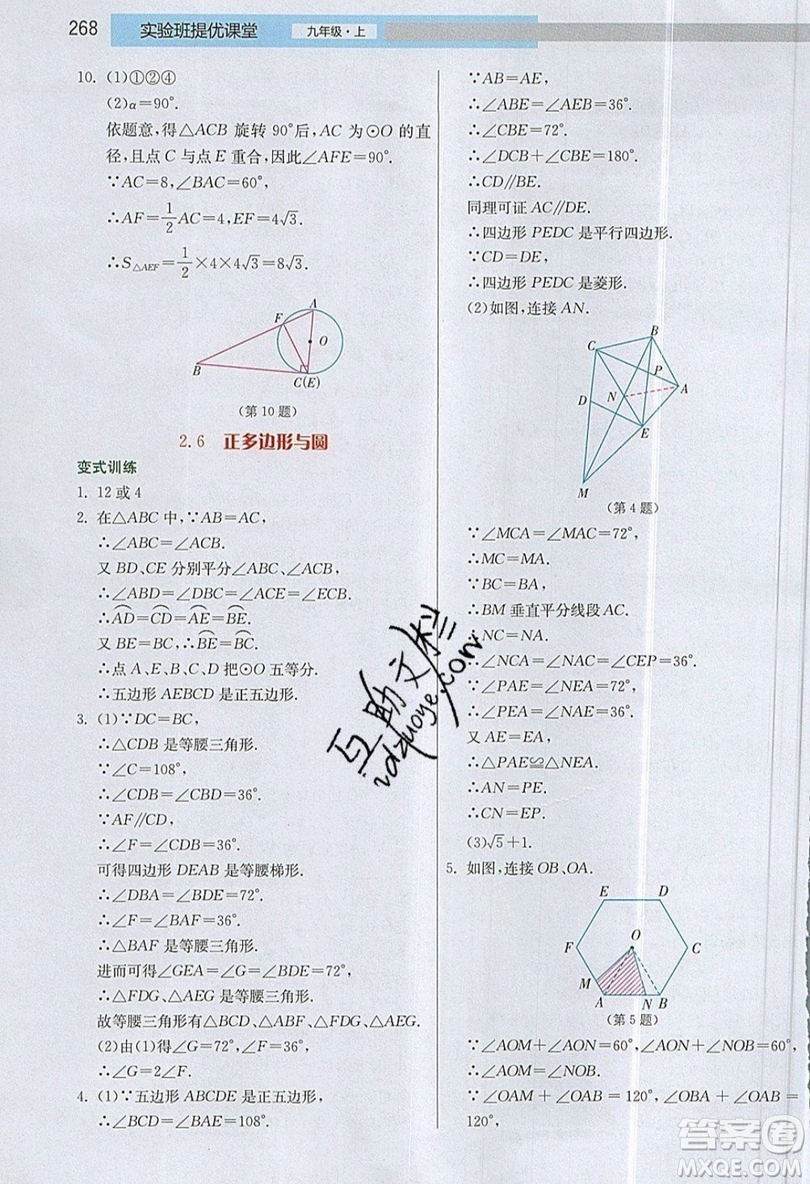 268 实验班提优课堂 九年级·上
10. (1)①②④
(2)α=90°.
依题意,得△ACB 旋转 90°后,AC 为⊙O 的直
径,且点 C 与点 E 重合,因此∠AFE=90°.
∵AC=8,∠BAC=60°,
∴AF=1/2AC=4,EF=4√3.
∴S△AEF=1/2×4×4√3=8√3.
A
F
O
B
C(E)
(第 10 题)
2.6 正多边形与圆
变式训练
1. 12 或 4
2. 在△ABC 中,∵AB=AC,
∴∠ABC=∠ACB.
又 BD、CE 分别平分∠ABC、∠ACB,
∴∠ABD=∠DBC=∠ACE=∠ECB.
∴A͡D=C͡D=A͡E=B͡E.
又 BE=BC,∴B͡E=B͡C.
∴点 A、E、B、C、D 把⊙O 五等分.
∴五边形 AEBCD 是正五边形.
3. (1)∵DC=BC,
∴△CDB 是等腰三角形.
∵∠C=108°,
∴∠CDB=36°.
∵AF∥CD,
∴∠F=∠CDB=36°.
可得四边形 DEAB 是等腰梯形.
∴∠DBA=∠BDE=72°.
∴∠BAF=∠F=36°.
∴△BAF 是等腰三角形.
进而可得∠GEA=∠G=∠BDE=72°.
∴△FDG、△AEG 是等腰三角形.
故等腰三角形有△BCD、△ABF、△FDG、△AEG.
(2)由(1)可得∠G=72°,∠F=36°,
∴∠G=2∠F.
4. (1)∵五边形 ABCDE 是正五边形,
∴∠BCD=∠BAE=108°.
∵AB=AE,
∴∠ABE=∠AEB=36°.
∴∠CBE=72°.
∴∠DCB+∠CBE=180°.
∴CD∥BE.
同理可证 AC∥DE.
∴四边形 PEDC 是平行四边形.
∵CD=DE,
∴四边形 PEDC 是菱形.
(2)如图,连接 AN.
B
C
P
A
D
N
E
M
(第 4 题)
∵∠MCA=∠MAC=72°,
∴MC=MA.
∵BC=BA,
∴BM 垂直平分线段 AC.
∴NC=NA.
∴∠NCA=∠NAC=∠CEP=36°.
∴∠PAE=∠NEA=72°,
∴∠PEA=∠NAE=36°.
又 AE=EA,
∴△PAE≌△NEA.
∴AN=PE.
∴CN=EP.
(3)√5+1.
5. 如图,连接 OB、OA.
E D
O
F C
M
A N B
(第 5 题)
∵∠AOM+∠AON=60°,∠AON+∠NOB=60°,
∴∠AOM=∠NOB.
∵∠OAM + ∠OAB = 120°, ∠OBA + ∠OAB =
120°,
互助文栏
idzuoye.com
答案圈
MXQE.COM